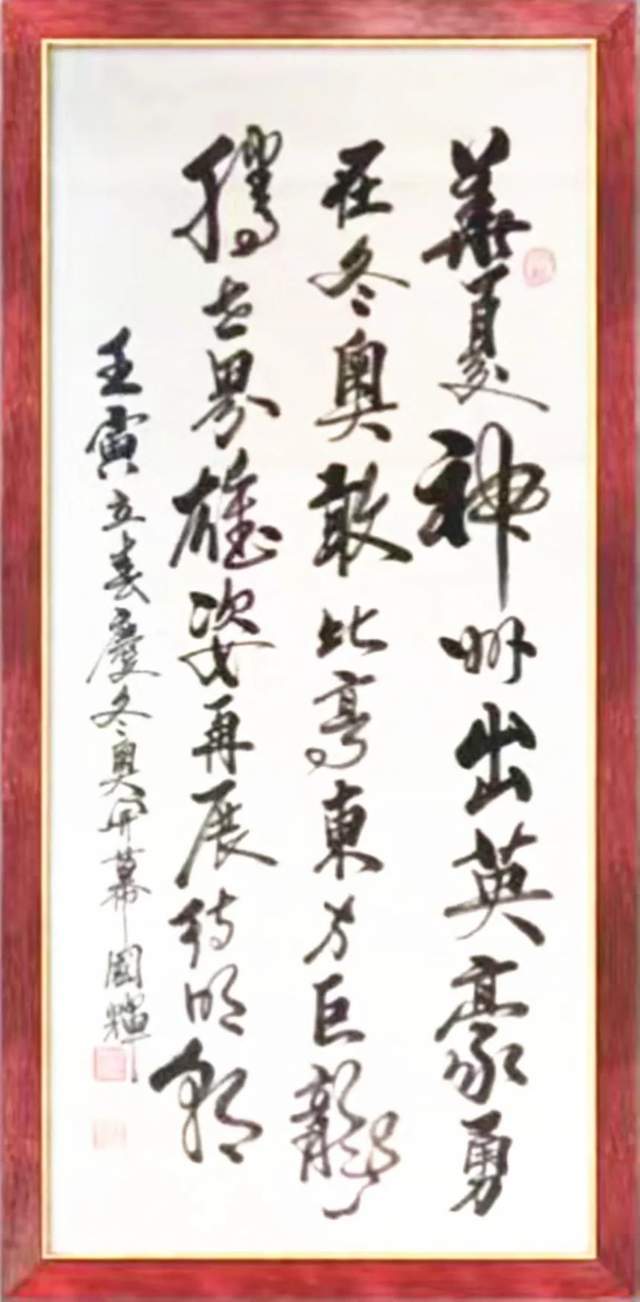 華夏神州出英豪勇
在冬奥敢比高東方巨龍
世界雄姿再展待明朝
壬寅立春慶冬奥開幕國輝